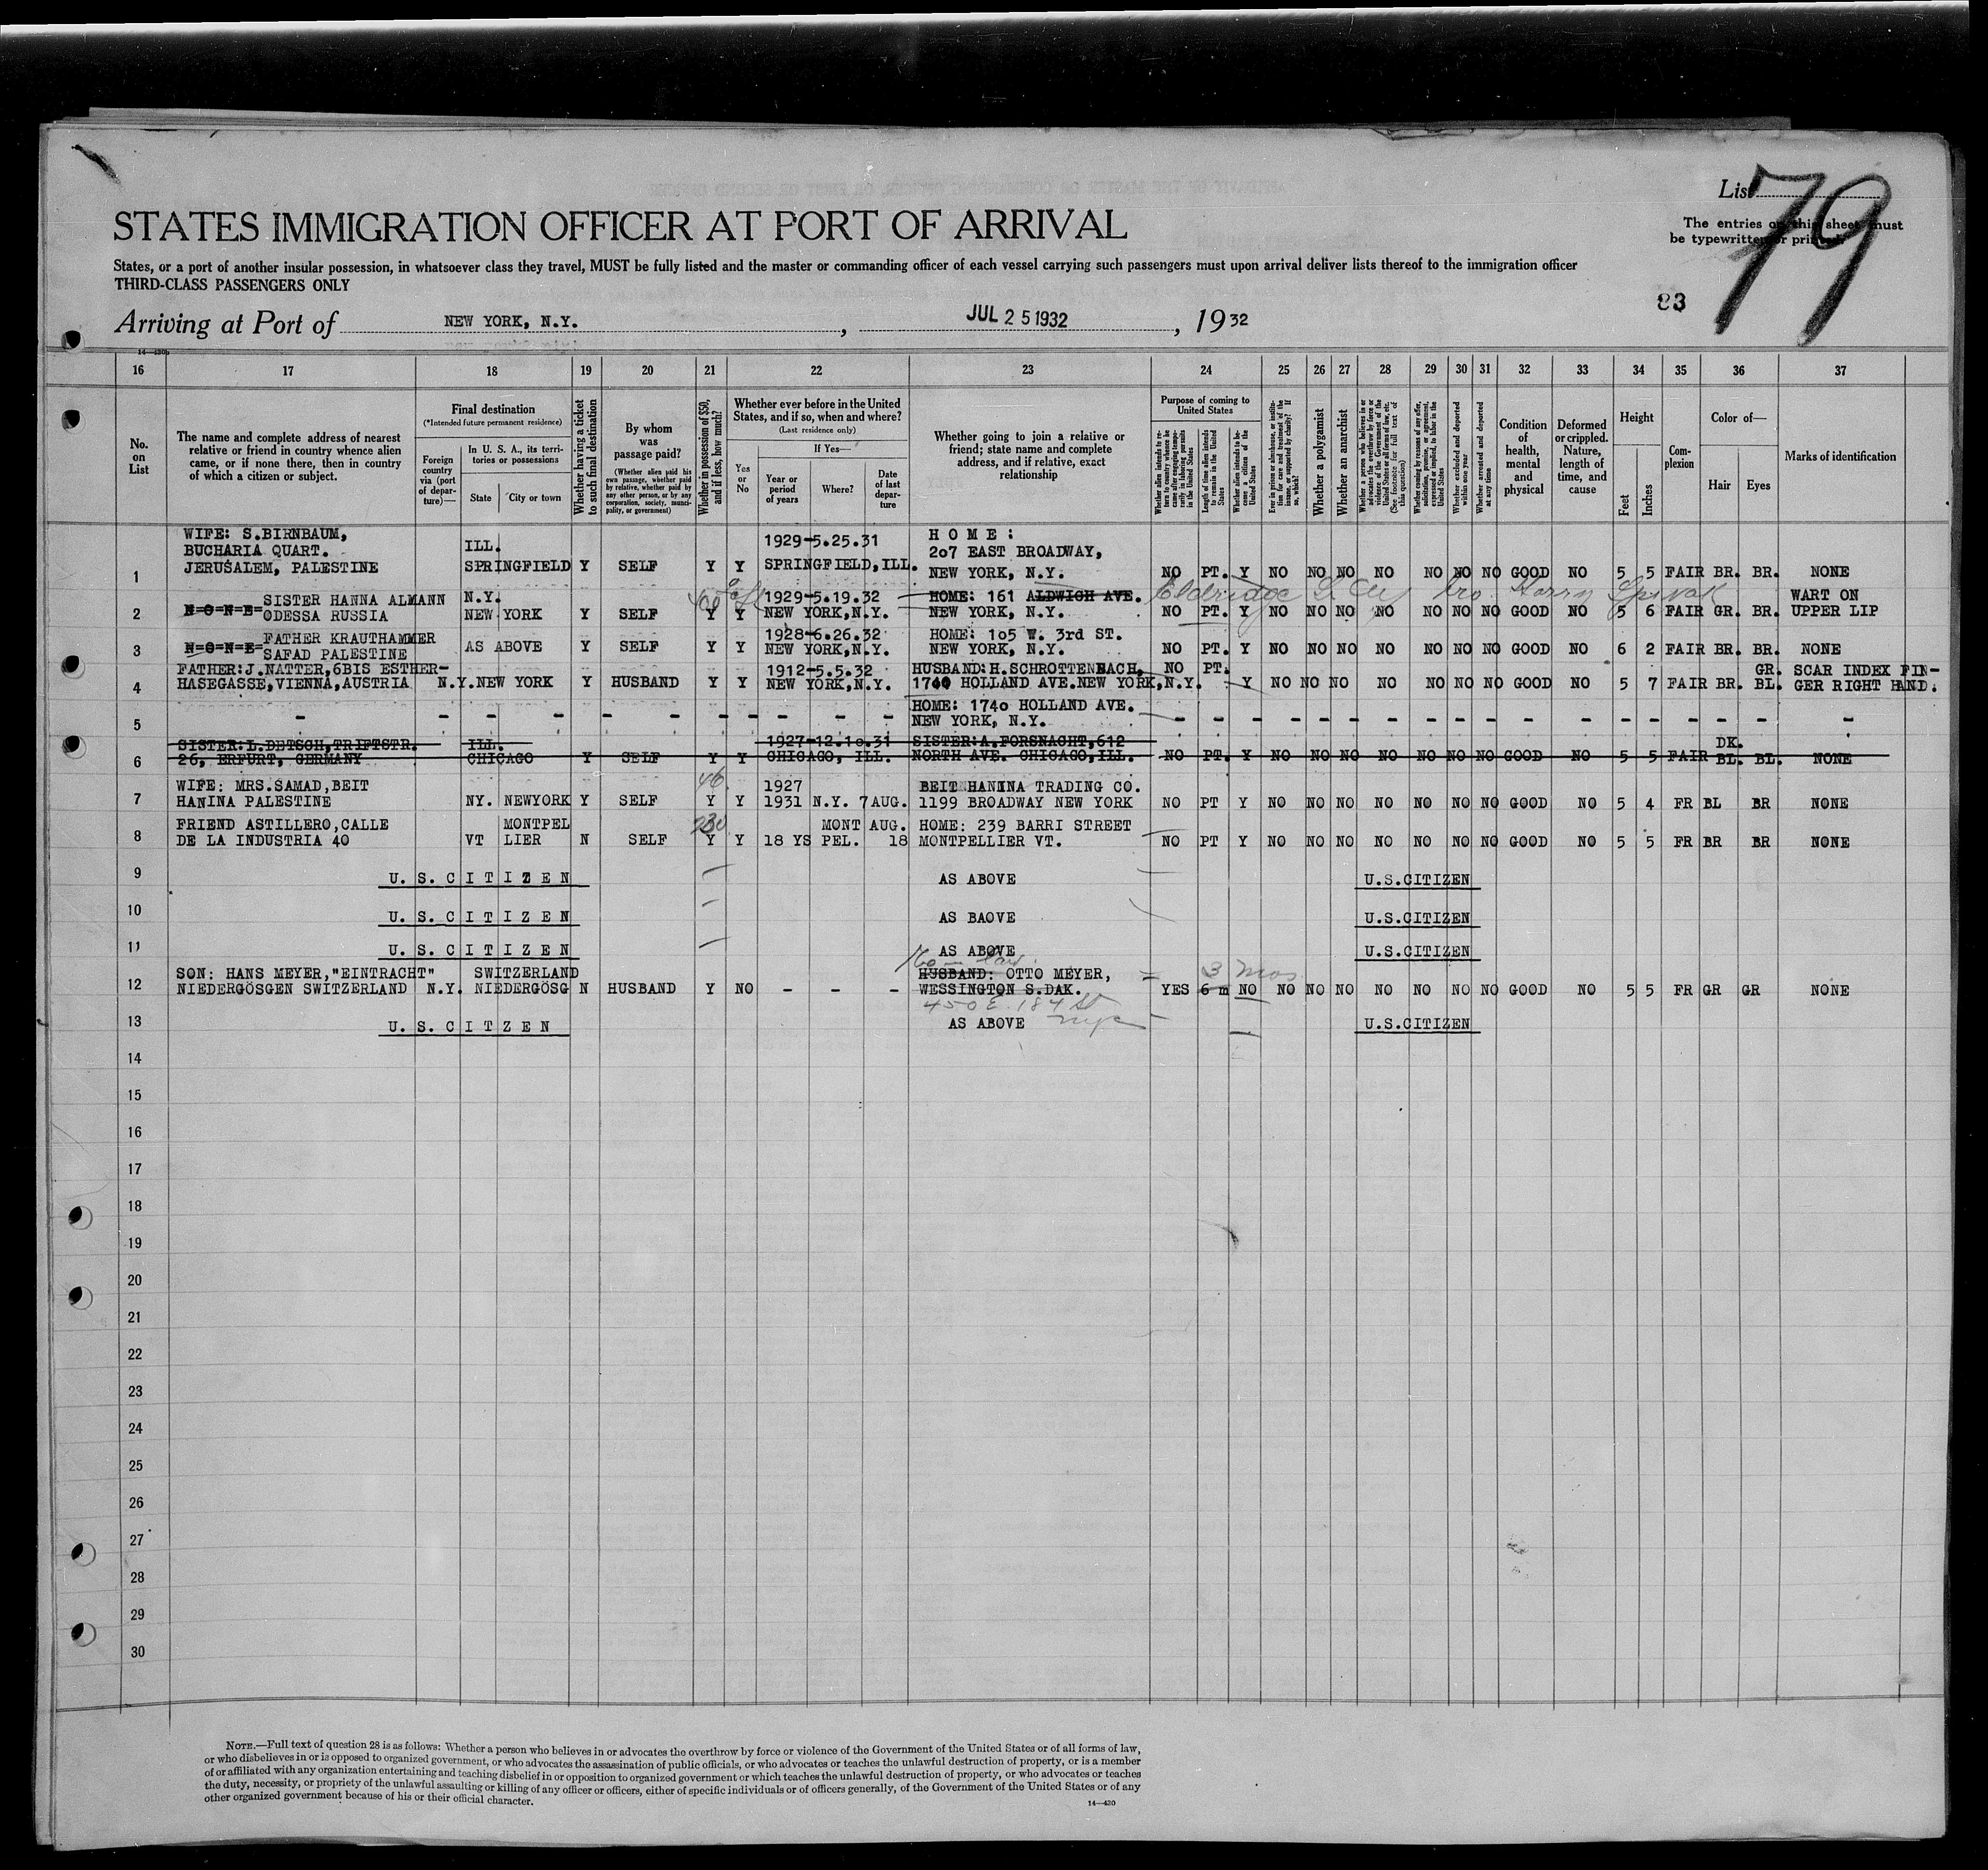 List 79
The entries on this sheet must
be typewritten or printed.
STATES IMMIGRATION OFFICER AT PORT OF ARRIVAL
States, or a port of another insular possession, in whatsoever class they travel, MUST be fully listed and the master or commanding officer of each vessel carrying such passengers must upon arrival deliver lists thereof to the immigration officer
THIRD-CLASS PASSENGERS ONLY
83
Arriving at Port of NEW YORK, N.Y., JUL 25 1932, 1932
14—430
16 17 18 19 20 21 22 23 24 25 26 27 28 29 30 31 32 33 34 35 36 37
No. on List
The name and complete address of nearest
relative or friend in country whence alien
came, or if none there, then in country
of which a citizen or subject.
Final destination
(*Intended future permanent residence)
Foreign country via (port of departure)—
In U. S. A., its territories or possessions
State City or town
Whether having a ticket to such final destination
By whom was passage paid?
(Whether alien paid his own passage, whether paid by relative, whether paid by any other person, or by any corporation, society, municipality, or government)
Whether in possession of $50, and if less, how much?
Whether ever before in the United States, and if so, when and where?
(Last residence only)
Yes or No
If Yes—
Year or period of years
Where?
Date of last departure
Whether going to join a relative or
friend; state name and complete
address, and if relative, exact
relationship
Purpose of coming to United States
Whether alien intends to return to country whence he came after engaging temporarily in laboring pursuits in the United States
Length of time alien intends to remain in the United States
Whether alien intends to become a citizen of the United States
Ever in prison or almshouse, or institution for care and treatment of the insane, or supported by charity? If so, which?
Whether a polygamist
Whether an anarchist
Whether a person who believes in or advocates the overthrow by force or violence of the Government of the United States or all forms of law, etc. (See footnote for full text of this question)
Whether coming by reason of any offer, solicitation, promise, or agreement, expressed or implied, to labor in the United States
Whether excluded and deported within one year
Whether arrested and deported at any time
Condition of health, mental and physical
Deformed or crippled. Nature, length of time, and cause
Height
Feet Inches
Complexion
Color of—
Hair Eyes
Marks of identification
WIFE: S.BIRNBAUM, 1929-5.25.31 H O M E :
BUCHARIA QUART. ILL. 207 EAST BROADWAY,
1 JERUSALEM, PALESTINE SPRINGFIELD Y SELF Y Y SPRINGFIELD,ILL. NEW YORK, N.Y. NO PT. Y NO NO NO NO NO NO NO GOOD NO 5 5 FAIR BR. BR. NONE
SISTER HANNA ALMANN N.Y. 1929-5.19.32 HOME: 161 ALDWICH AVE. Eldridge Harry Spivak WART ON
2 N=O=N=E= ODESSA RUSSIA NEW YORK Y SELF Y Y NEW YORK,N.Y. NEW YORK, N.Y. NO PT. Y NO NO NO NO NO NO NO GOOD NO 5 6 FAIR GR. BR. UPPER LIP
FATHER KRAUTHAMMER 1928-6.26.32 HOME: 105 W. 3rd ST.
3 N=O=N=E= SAFAD PALESTINE AS ABOVE Y SELF Y Y NEW YORK,N.Y. NEW YORK, N.Y. NO PT. Y NO NO NO NO NO NO NO GOOD NO 6 2 FAIR BR. BR. NONE
FATHER:J.NATTER,6BIS ESTHER- 1912-5.5.32 HUSBAND:H.SCHROTTENBACH, NO PT. GR. SCAR INDEX FIN-
4 HASEGASSE,VIENNA,AUSTRIA N.Y.NEW YORK Y HUSBAND Y Y NEW YORK,N.Y. 1740 HOLLAND AVE.NEW YORK,N.Y. Y NO NO NO NO NO NO NO GOOD NO 5 7 FAIR BR. BL. GER RIGHT HAND.
HOME: 1740 HOLLAND AVE.
5 - - - - - - - - - - NEW YORK, N.Y. - - - - - - - - - - - - - - - - -
SISTER:L.DETSCH,TRIFTSTR. ILL. 1927-12.10.31 SISTER:A.FORSNACHT,612 DK.
6 26, ERFURT, GERMANY CHICAGO Y SELF Y Y CHICAGO, ILL. NORTH AVE. CHICAGO,ILL. NO PT. Y NO NO NO NO NO NO NO GOOD NO 5 5 FAIR BL. BL. NONE
WIFE: MRS.SAMAD,BEIT 46. 1927 BEIT HANINA TRADING CO.
7 HANINA PALESTINE NY. NEWYORK Y SELF Y Y 1931 N.Y. 7AUG. 1199 BROADWAY NEW YORK NO PT Y NO NO NO NO NO NO NO GOOD NO 5 4 FR BL BR NONE
FRIEND ASTILLERO,CALLE MONTPEL 230 MONT AUG. HOME: 239 BARRI STREET
8 DE LA INDUSTRIA 40 VT LIER N SELF Y Y 18 YS PEL. 18 MONTPELLIER VT. NO PT Y NO NO NO NO NO NO NO GOOD NO 5 5 FR BR BR NONE
9 U. S. C I T I Z E N AS ABOVE U.S.CITIZEN
10 U. S. C I T I Z E N AS BAOVE U.S.CITIZEN
11 U. S. C I T I Z E N AS ABOVE U.S.CITIZEN
SON: HANS MEYER,"EINTRACHT" SWITZERLAND HUSBAND: OTTO MEYER, 3 mos
12 NIEDERGÖSGEN SWITZERLAND N.Y. NIEDERGÖSG N HUSBAND Y NO - - - WESSINGTON S.DAK. YES 6 m NO NO NO NO NO NO NO NO GOOD NO 5 5 FR GR GR NONE
450 E. 184 St
nyc
13 U. S. C I T Z E N AS ABOVE U.S.CITIZEN
14
15
16
17
18
19
20
21
22
23
24
25
26
27
28
29
30
NOTE.—Full text of question 28 is as follows: Whether a person who believes in or advocates the overthrow by force or violence of the Government of the United States or of all forms of law,
or who disbelieves in or is opposed to organized government, or who advocates the assassination of public officials, or who advocates or teaches the unlawful destruction of property, or is a member
of or affiliated with any organization entertaining and teaching disbelief in or opposition to organized government or which teaches the unlawful destruction of property, or who advocates or teaches
the duty, necessity, or propriety of the unlawful assaulting or killing of any officer or officers, either of specific individuals or of officers generally, of the Government of the United States or of any
other organized government because of his or their official character.
14—430